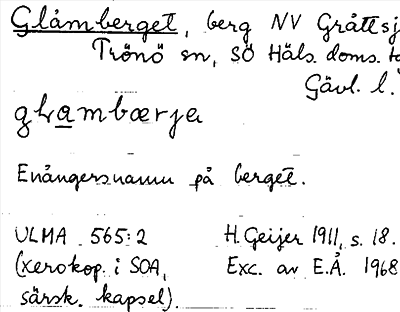 Glåmberget, berg NV Gråttsj
Trönö sn, SÖ Häls. doms. t
Gävl. l.
glambærja
Enångersnamn på berget.
ULMA 565:2 H. Geijer 1911, s. 18.
(xerokop. i SOA, Exc. av E.Å. 1968
särsk. kapsel).